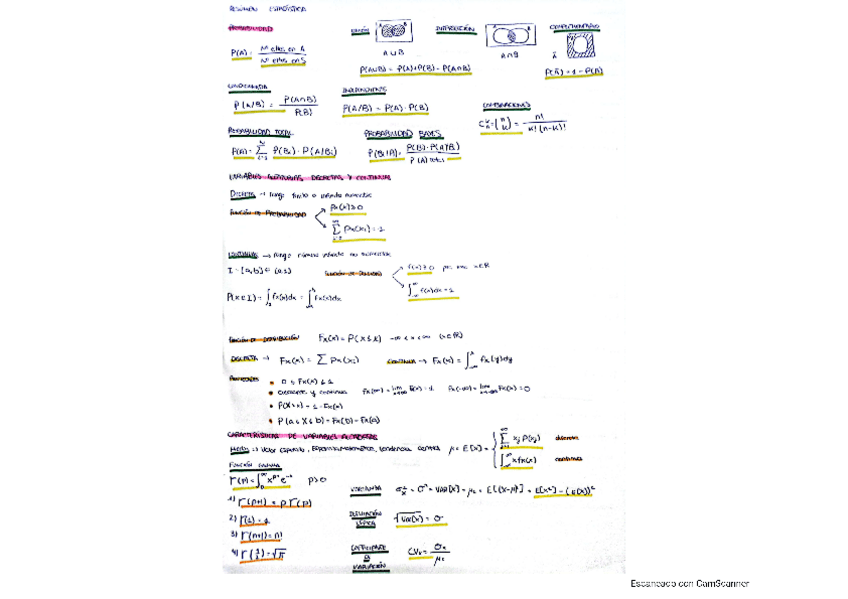 RESUMEN ESTADÍSTICA
PROBABILIDAD
P(A) = Nº eltos en A / Nº eltos en S
UNIÓN
A B
A ∪ B
P(A∪B) = P(A)+P(B) - P(A∩B)
INTERSECCIÓN
A B
A ∩ B
COMPLEMENTARIO
Ā
P(Ā) = 1 - P(A)
CONDICIONADA
P(A/B) = P(A∩B) / P(B)
INDEPENDIENTE
P(A/B) = P(A) · P(B)
COMBINACIONES
= (n k) = n! / k! (n-k)!
PROBABILIDAD TOTAL
P(A) = Σ P(Bi) · P(A/Bi)
PROBABILIDAD BAYES
P(Bi/A) = P(Bi) · P(A/Bi) / P(A)
VARIABLES ALEATORIAS, DISCRETAS Y CONTINUAS
DISCRETA → rango finito o infinito numerable
FUNCIÓN DE PROBABILIDAD
Px(x) ≥ 0
Σ Px(xi) = 1
CONTINUA → rango número infinito no numerable
I = [a,b] o (a,b)
FUNCIÓN DE DENSIDAD
f(x) ≥ 0 x∈R
∫ f(x)dx = 1
P(x∈I) = ∫ fx(x)dx = ∫ fx(x)dx
FUNCIÓN DE DISTRIBUCIÓN Fx(x) = P(X ≤ x) -∞ < x < ∞ (x∈R)
DISCRETA → Fx(x) = Σ Px(xi) CONTINUA → Fx(x) = ∫ fx(y)dy
PROPIEDADES
• 0 ≤ Fx(x) ≤ 1
• Creciente y continua Fx(∞) = lim Fx(x) = 1 Fx(-∞) = lim Fx(x) = 0
• P(X>x) = 1 - Fx(x)
• P(a ≤ X ≤ b) = Fx(b) - Fx(a)
CARACTERÍSTICAS DE VARIABLES ALEATORIAS
MEDIA → Valor esperado, tendencia central μ = E[X] =
Σ xj P(xj) discreta
∫ x fx(x) continua
FUNCIÓN GAMMA
Γ(p) = ∫ e⁻ˣ p>0
1) Γ(p+1) = p Γ(p)
2) Γ(1) = 1
3) Γ(n+1) = n!
4) Γ(1/2) = √π
VARIANZA = σ² = VAR[X] = E[(X-μ)²] = E[X²] - (E[X])²
DESVIACIÓN TÍPICA √VAR[X] = σ
COEFICIENTE DE VARIACIÓN CVx = σx / μx
Escaneado con CamScanner